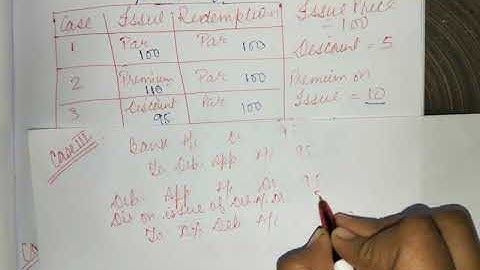 Case Issue Redemption
1 Par 100 Par 100
2 Premium 110 Par 100
3 Discount 95 Par 100
Issue Price
= 100
Discount = 5
Premium on
Issue = 10
Case III
Bank A/c Dr
To Deb. App A/c 95
Deb. App A/c Dr 95
Dis on issue of Deb A/c Dr 5
To % Deb A/c